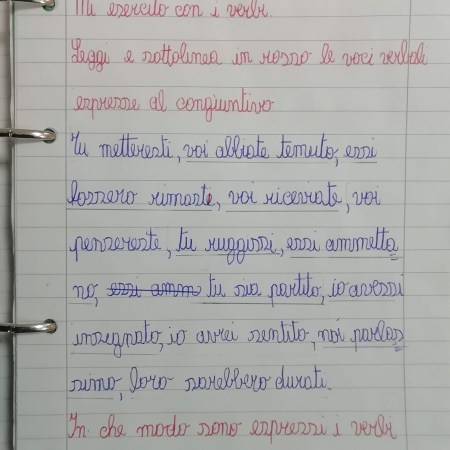 Mi esercito con i verbi.
Leggi e sottolinea in rosso le voci verbali
espresse al congiuntivo
Tu metteresti, voi abbiate temuto, essi
fossero rimasti, voi riceviate, voi
pensereste, tu ruggissi, essi ammetta
no, essi amm tu sia partito, io avessi
insegnato, io avrei sentito, noi parlas
simo, loro sarebbero durati.
In che modo sono espressi i verbi